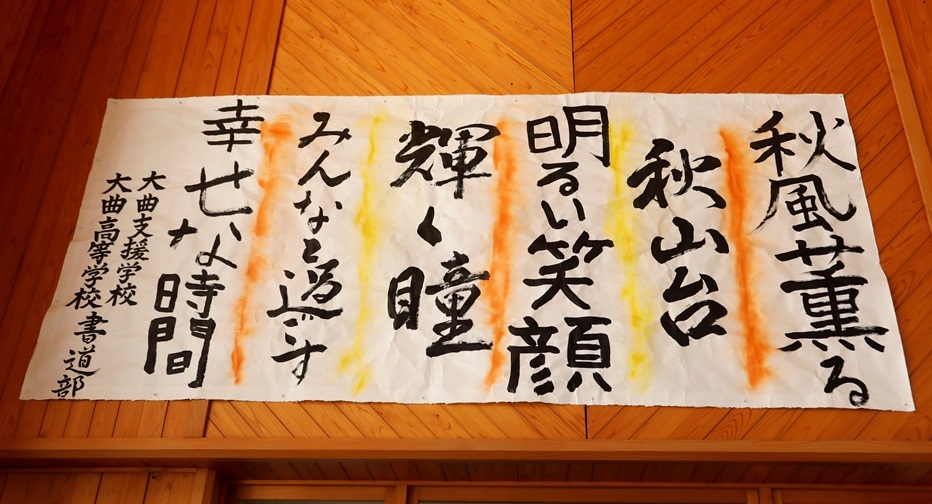 秋風薫る
秋山台
明るい笑顔
輝く瞳
みんなと過ごす
幸せな時間
大曲支援学校
大曲高等学校書道部